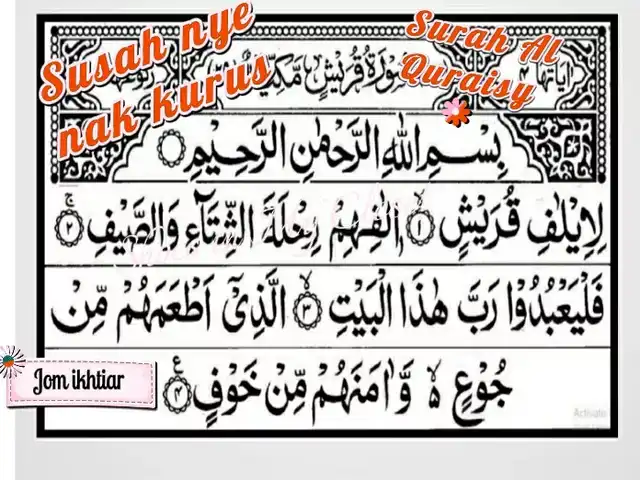 Susah nye
nak kurus
Surah Al
Quraisy
سُوْرَةُ قُرَيْشٍ مَّكِّيَّةٌ
اٰيَاتُهَا ٤
بِسْمِ اللّٰهِ الرَّحْمٰنِ الرَّحِيْمِ
لِاِيْلٰفِ قُرَيْشٍ ۙ﴿۱﴾ اٖلٰفِهِمْ رِحْلَةَ الشِّتَآءِ وَالصَّيْفِ ۚ﴿۲﴾
فَلْيَعْبُدُوْا رَبَّ هٰذَا الْبَيْتِ ۙ﴿۳﴾ الَّذِيْٓ اَطْعَمَهُمْ مِّنْ
جُوْعٍ ۙ وَّاٰمَنَهُمْ مِّنْ خَوْفٍ ﴿۴﴾ ع
Jom ikhtiar
Activate